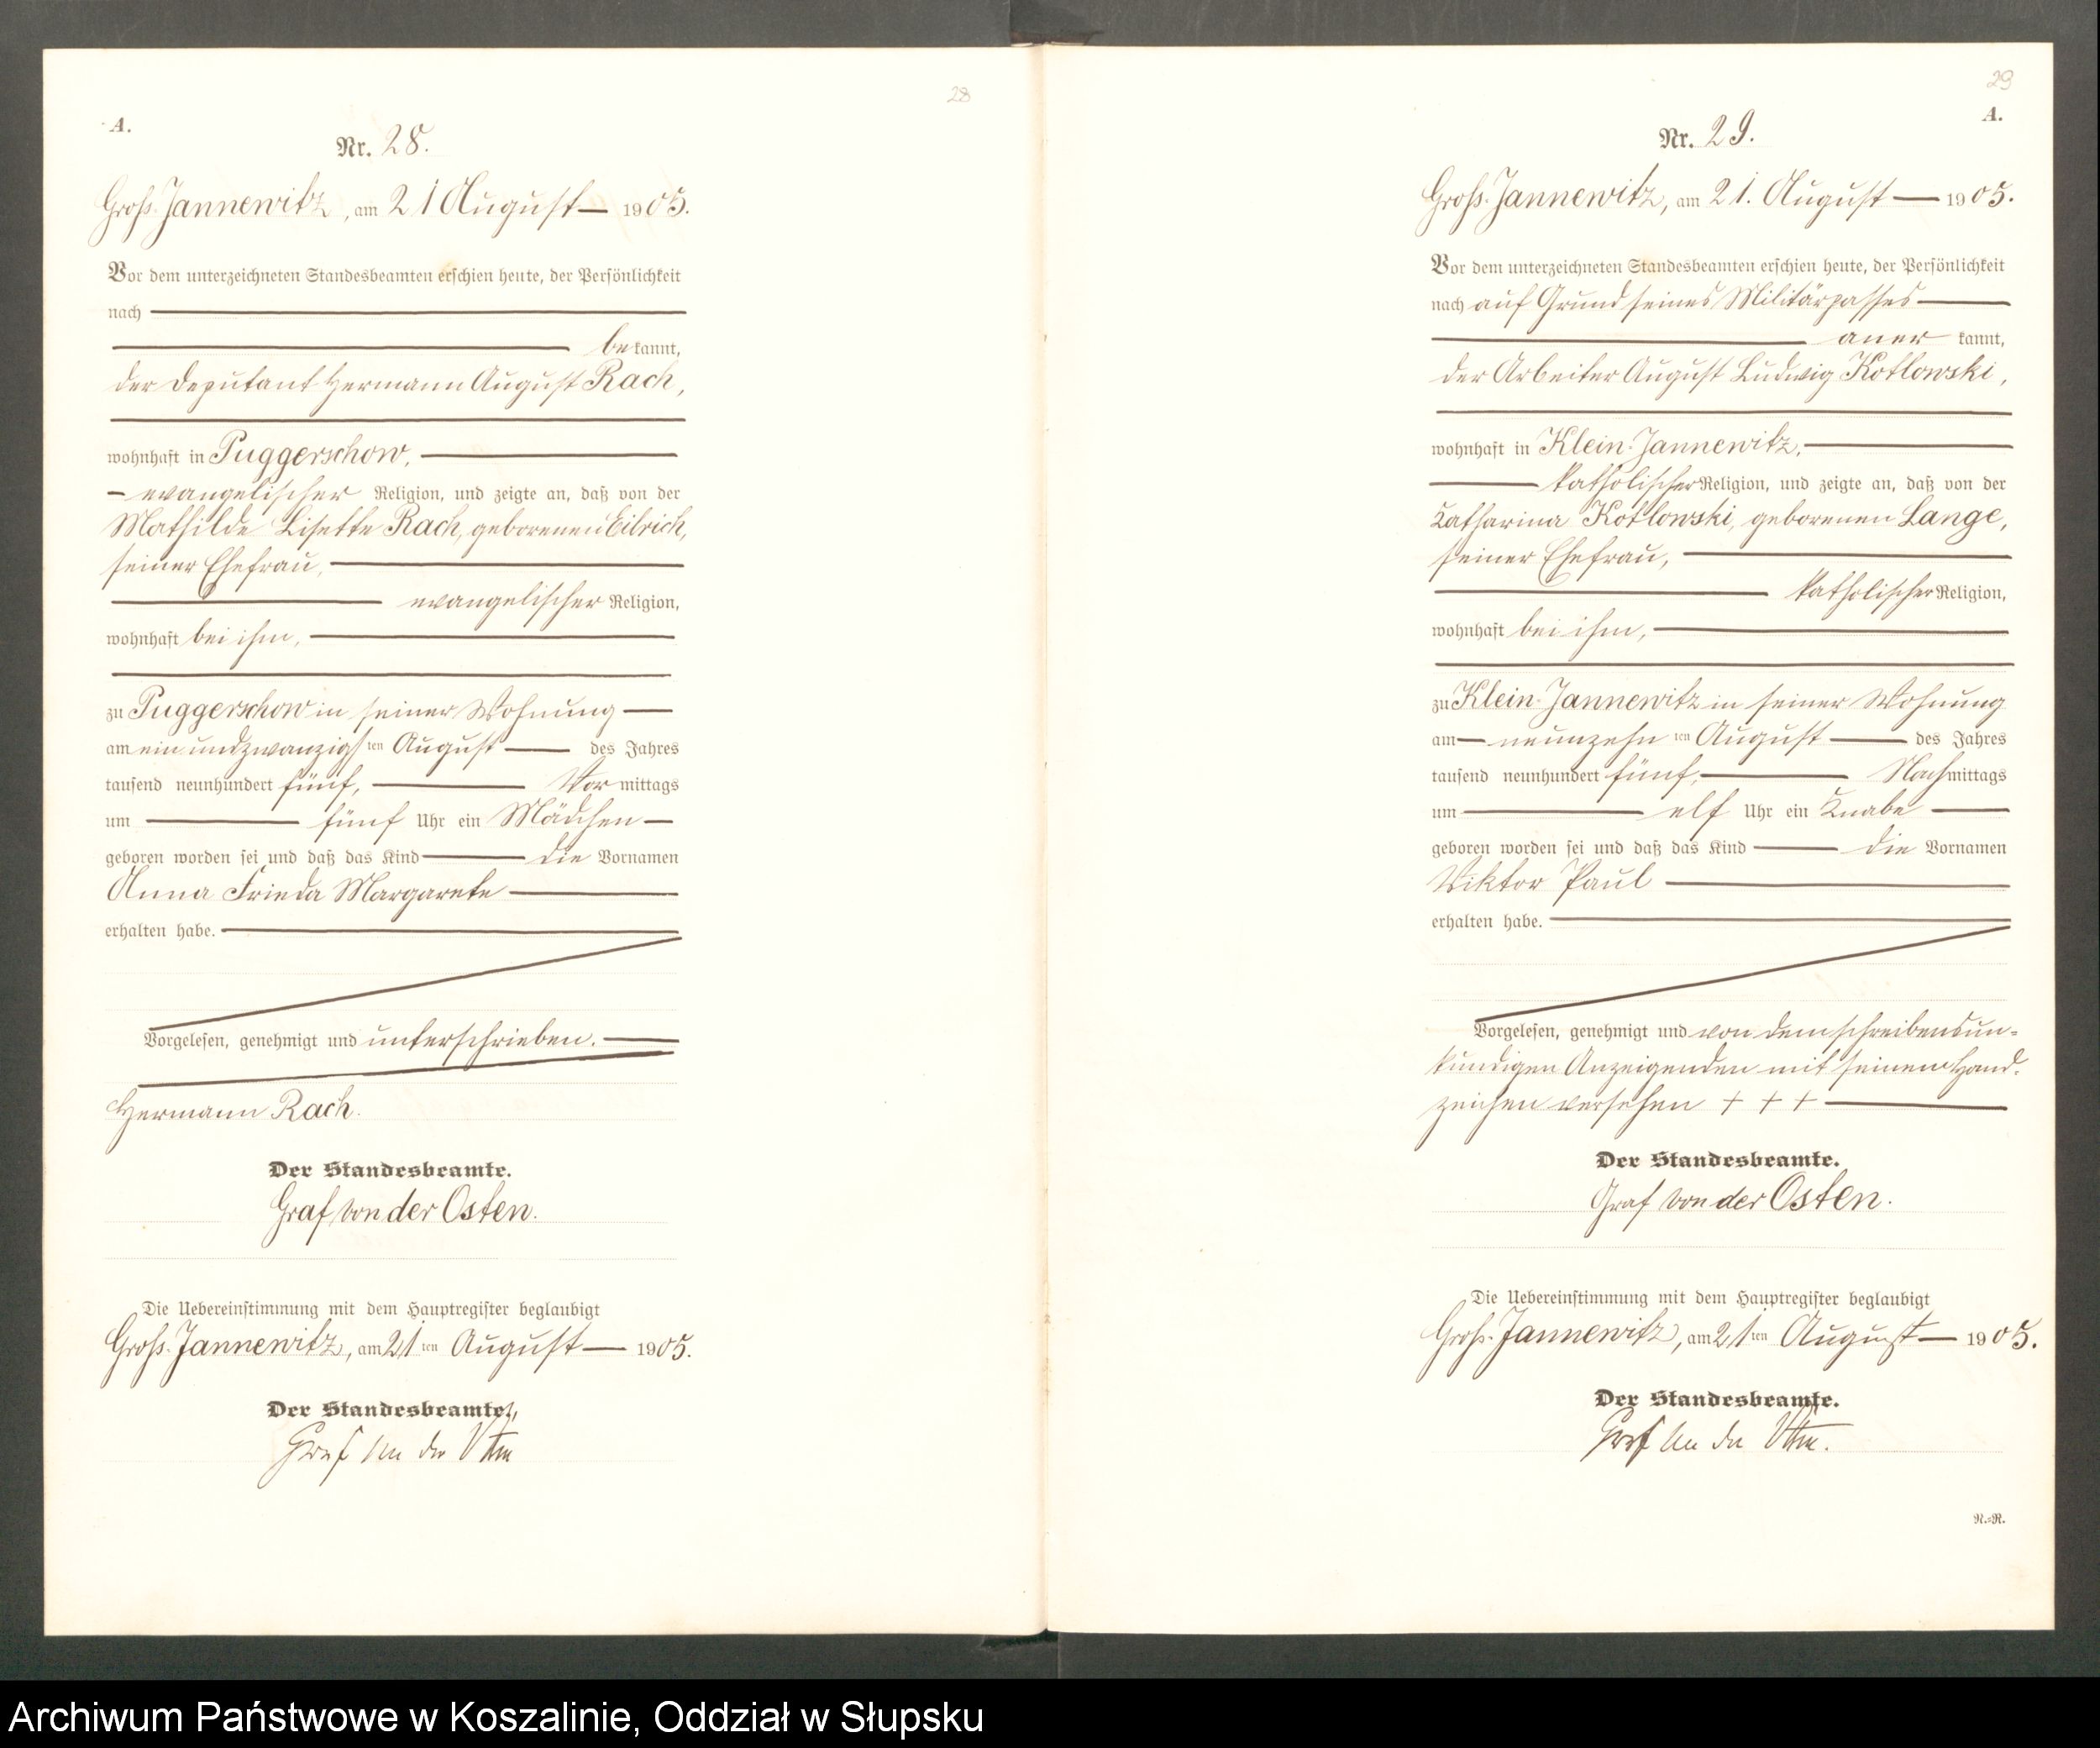 28
A.
Nr. 28.
Groß Jannewitz, am 21 August 1905.
Vor dem unterzeichneten Standesbeamten erschien heute, der Persönlichkeit
nach
bekannt,
der Deputant Hermann August Rach,
wohnhaft in Puggerschow,
evangelischer Religion, und zeigte an, daß von der
Mathilde Lisette Rach, geborenen Eilrich,
seiner Ehefrau,
evangelischer Religion,
wohnhaft bei ihm,
zu Puggerschow in seiner Wohnung
am einundzwanzigsten August des Jahres
tausend neunhundert fünf, Vormittags
um fünf Uhr ein Mädchen
geboren worden sei und daß das Kind die Vornamen
Anna Frieda Margarete
erhalten habe.
Vorgelesen, genehmigt und unterschrieben.
Hermann Rach.
Der Standesbeamte.
Graf von der Osten.
Die Uebereinstimmung mit dem Hauptregister beglaubigt
Groß Jannewitz, am 21ten August 1905.
Der Standesbeamte.
Graf von der Osten
29
A.
Nr. 29.
Groß-Jannewitz, am 21. August 1905.
Vor dem unterzeichneten Standesbeamten erschien heute, der Persönlichkeit
nach auf Grund seines Militärpasses
anerkannt,
der Arbeiter August Ludwig Kotlowski,
wohnhaft in Klein-Jannewitz,
katholischer Religion, und zeigte an, daß von der
Katharina Kotlowski, geborenen Lange,
seiner Ehefrau,
katholischer Religion,
wohnhaft bei ihm,
zu Klein-Jannewitz in seiner Wohnung
am neunzehnten August des Jahres
tausend neunhundert fünf, Nachmittags
um elf Uhr ein Knabe
geboren worden sei und daß das Kind die Vornamen
Viktor Paul
erhalten habe.
Vorgelesen, genehmigt und von dem schreibensun-
kundigen Anzeigenden mit seinem Hand-
zeichen versehen + + +
Der Standesbeamte.
Graf von der Osten.
Die Uebereinstimmung mit dem Hauptregister beglaubigt
Groß-Jannewitz, am 21ten August 1905.
Der Standesbeamte.
Graf von der Osten.
N.=R.
Archiwum Państwowe w Koszalinie, Oddział w Słupsku